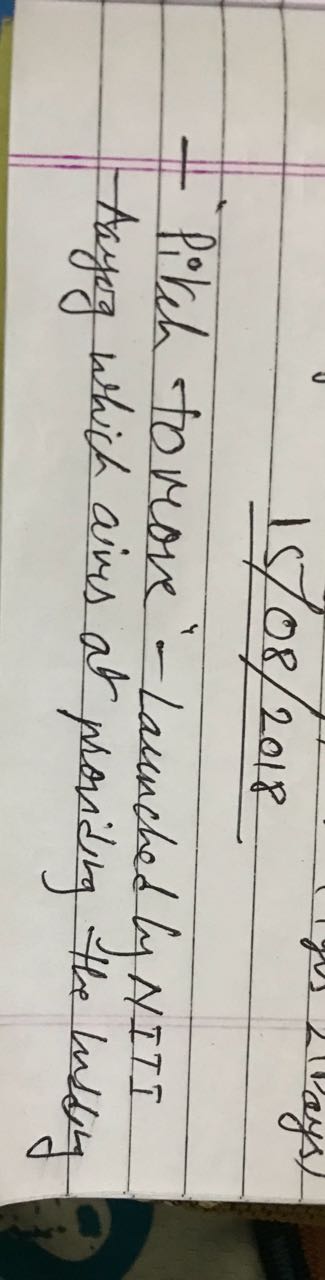 2 Days)
15/08/2018
— "Pitch to move" - Launched by NITI
Aayog which aims at providing the budding